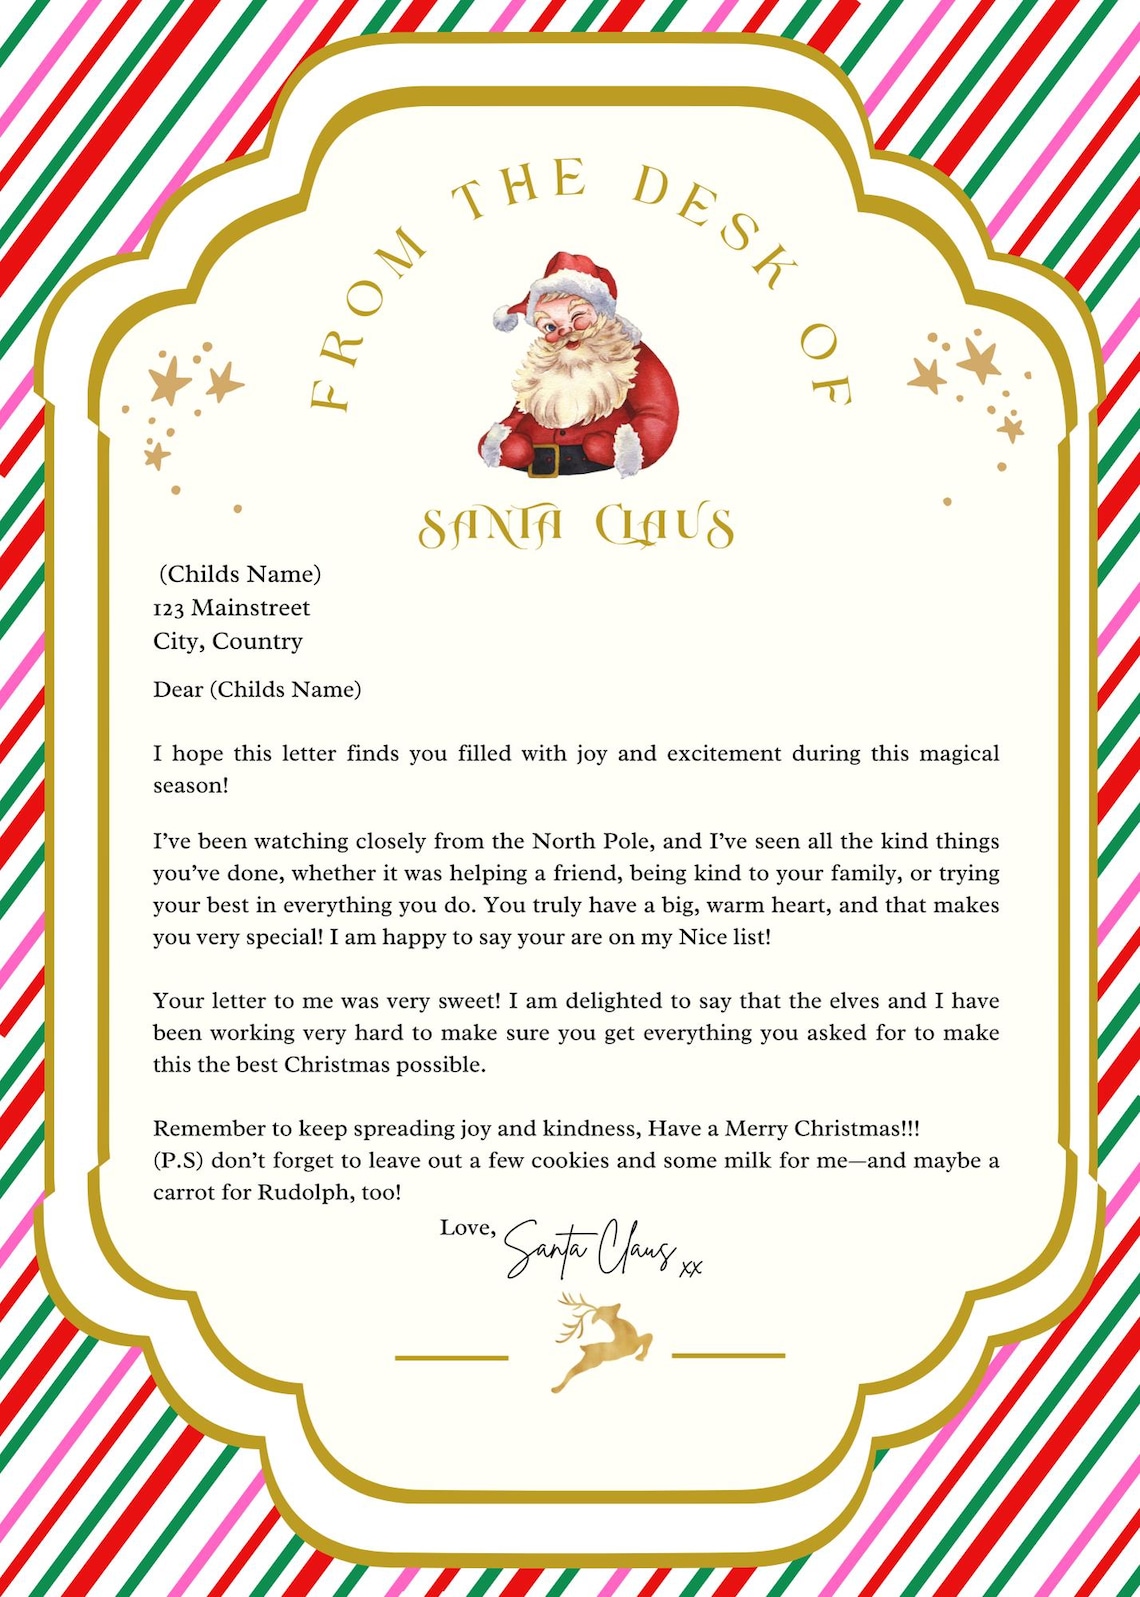 FROM THE DESK OF
SANTA CLAUS
(Childs Name)
123 Mainstreet
City, Country
Dear (Childs Name)
I hope this letter finds you filled with joy and excitement during this magical
season!
I’ve been watching closely from the North Pole, and I’ve seen all the kind things
you’ve done, whether it was helping a friend, being kind to your family, or trying
your best in everything you do. You truly have a big, warm heart, and that makes
you very special! I am happy to say your are on my Nice list!
Your letter to me was very sweet! I am delighted to say that the elves and I have
been working very hard to make sure you get everything you asked for to make
this the best Christmas possible.
Remember to keep spreading joy and kindness, Have a Merry Christmas!!!
(P.S) don’t forget to leave out a few cookies and some milk for me—and maybe a
carrot for Rudolph, too!
Love, Santa Claus xx